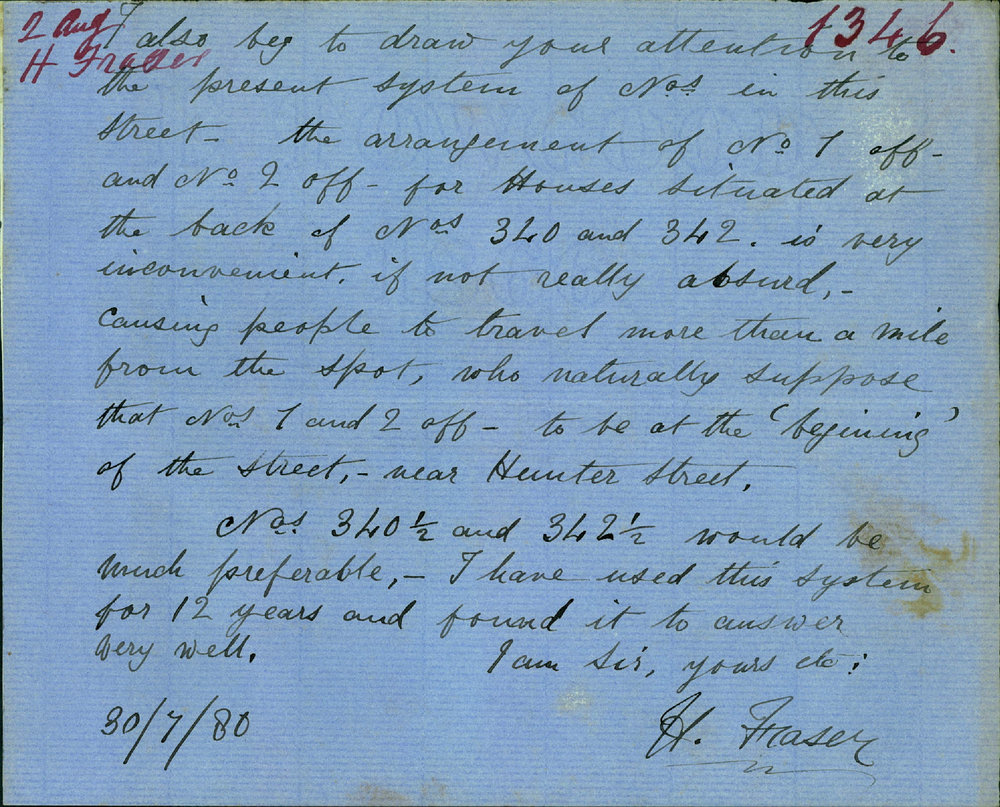 2 Aug
H Fraser
1346.
I also beg to draw your attention to
the present system of Nos in this
street- the arrangement of No 1 off-
and No 2 off- for Houses situated at
the back of Nos 340 and 342. is very
inconvenient. if not really absurd,-
causing people to travel more than a mile
from the spot, who naturally suppose
that Nos 1 and 2 off- to be at the 'begining'
of the street,- near Hunter Street.
Nos. 340½ and 342½ would be
much preferable,- I have used this system
for 12 years and found it to answer
very well. I am Sir, yours etc:
30/7/80 H. Fraser